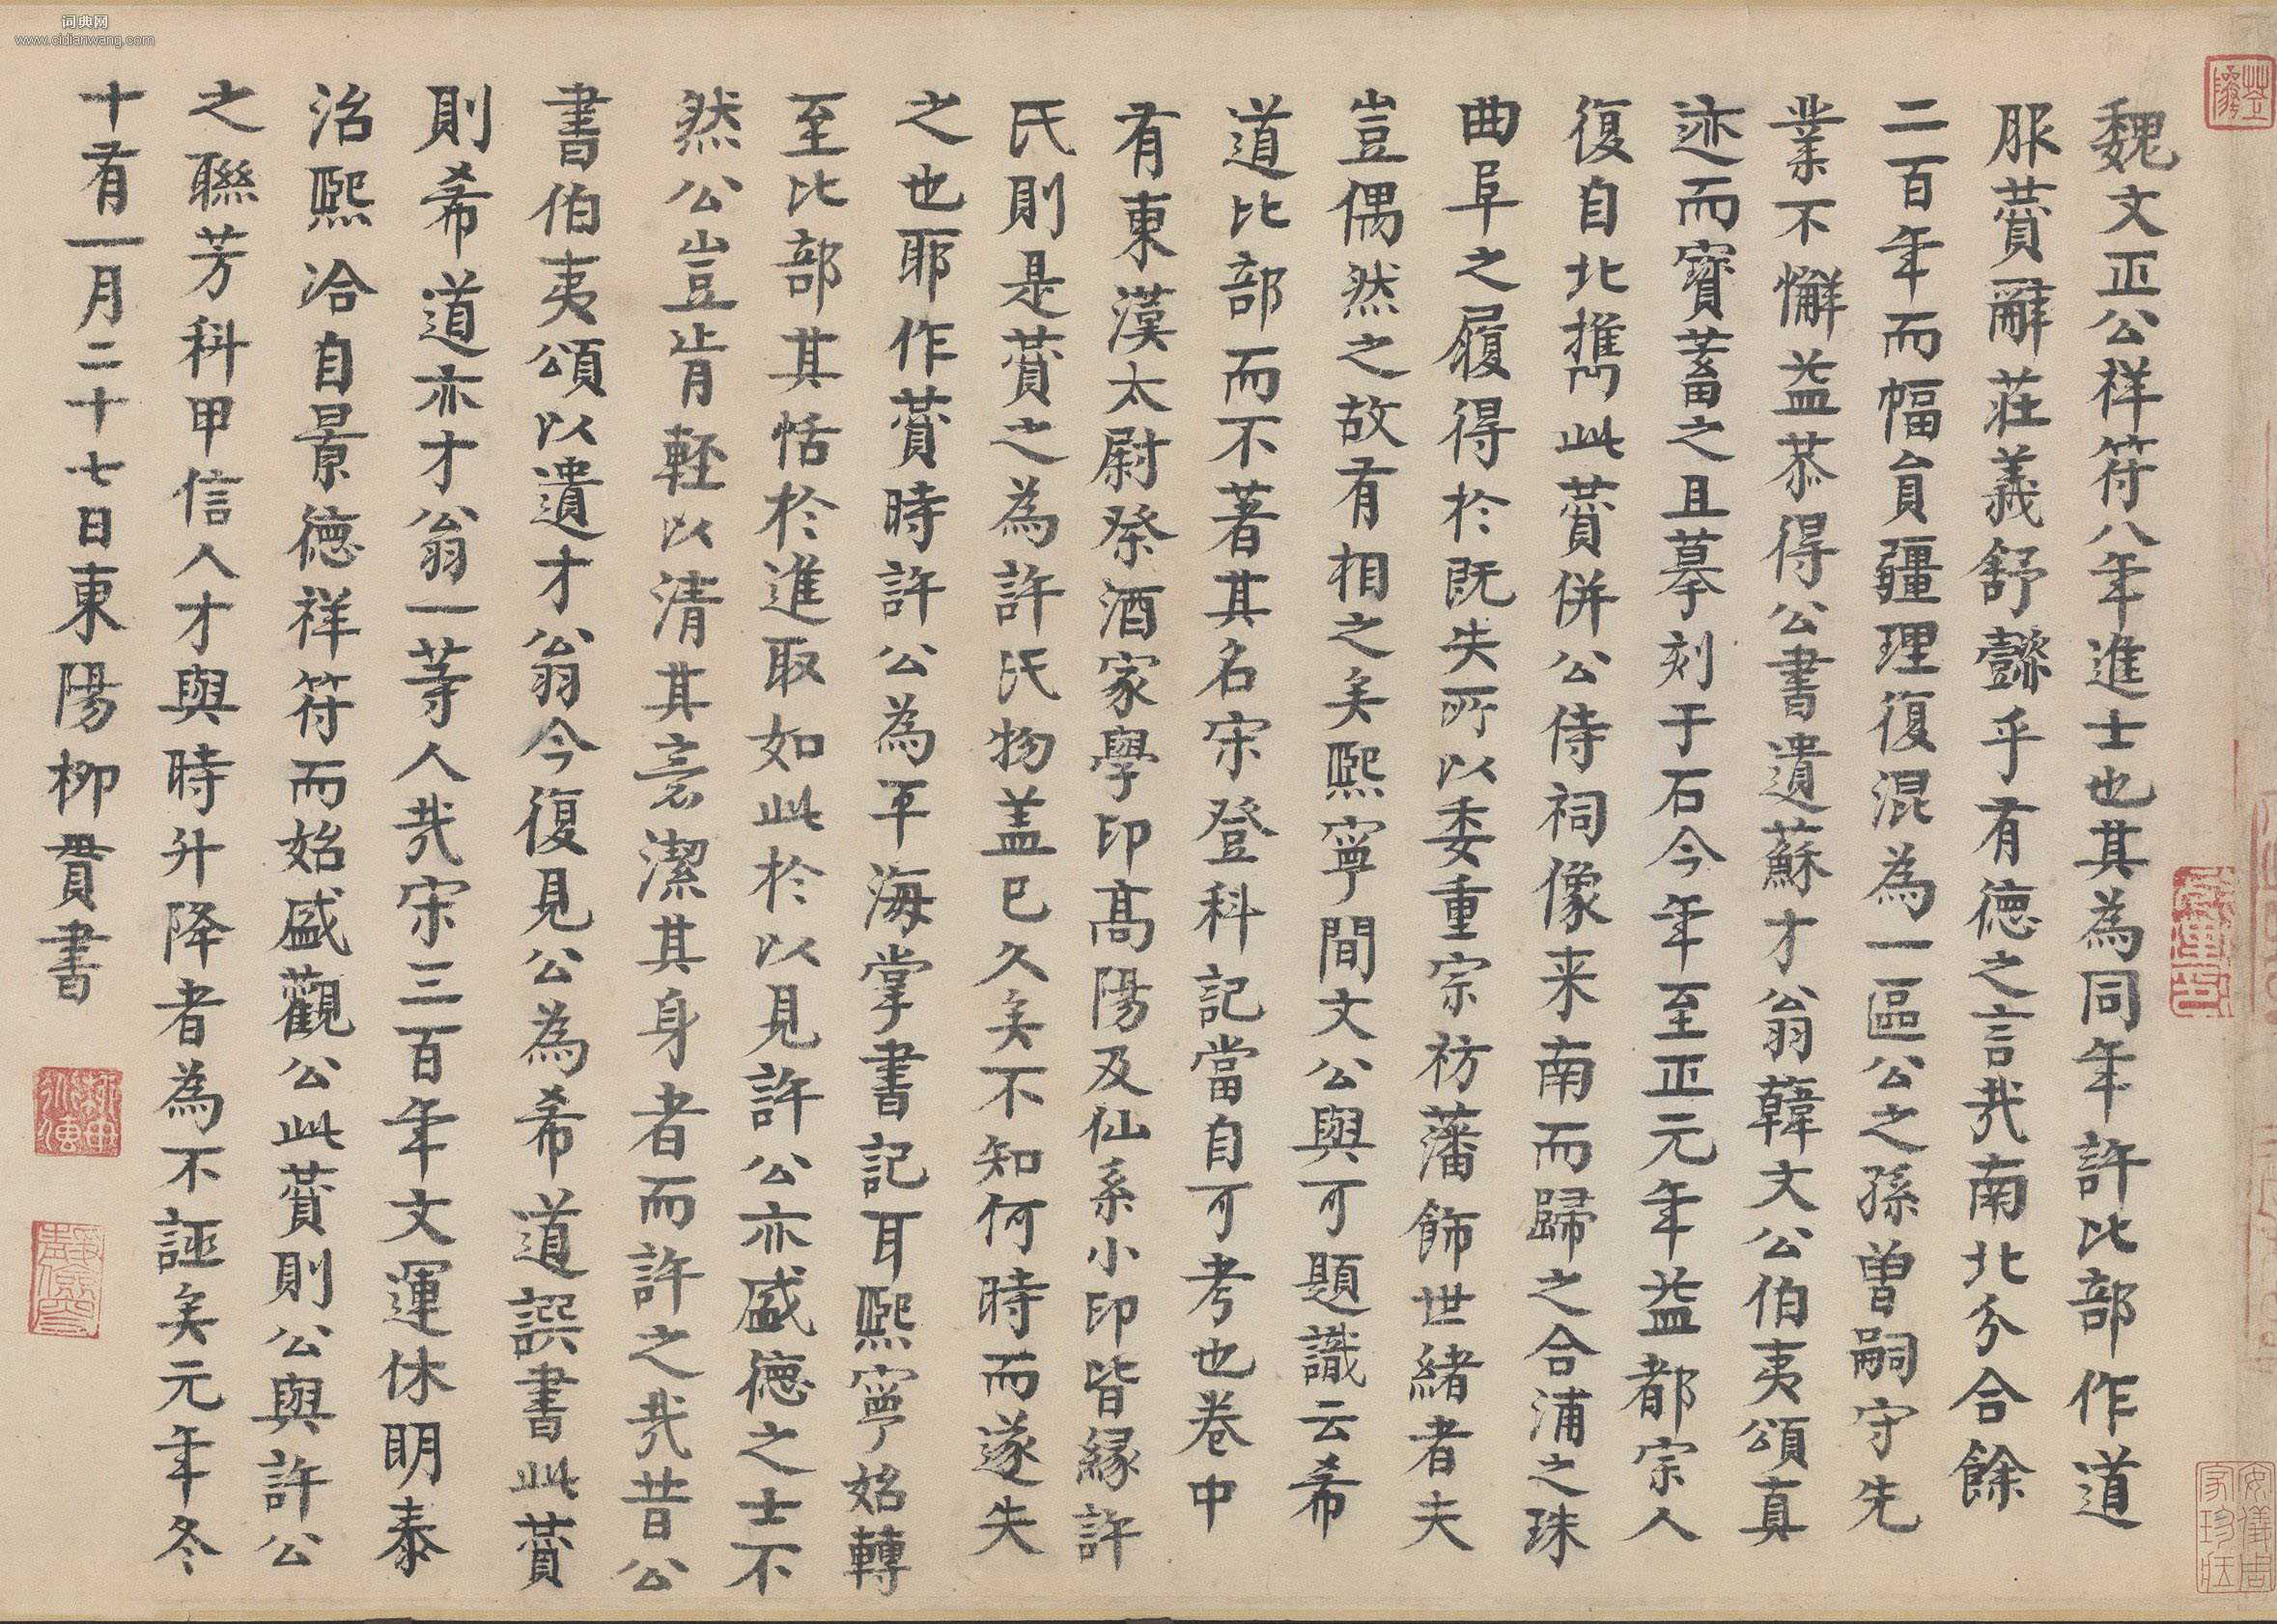 魏文正公祥符八年進士也其為同年許比部作道
服賛辭莊義舒懿乎有德之言哉南北分合餘
二百年而幅員疆理復混為一區公之孫曽嗣守先
業不懈益恭得公書遺蘇才翁韓文公伯夷頌真
迹而寳蓄之且摹刻于石今年至正元年益都宗人
復自北携此賛併公侍祠像来南而歸之合浦之珠
曲阜之履得於既失所以委重宗祊藩飾世緒者夫
豈偶然之故有相之矣熙寧間文公與可題識云希
道比部而不著其名宋登科記當自可考也卷中
有東漢太尉祭酒家學印髙陽及仙系小印皆縁許
氏則是賛之為許氏物盖已久矣不知何時而遂失
之也耶作賛時許公為平海掌書記耳熙寧始轉
至比部其恬於進取如此於以見許公亦盛德之士不
然公豈肯輕以清其意潔其身者而許之哉昔公
書伯夷頌以遺才翁今復見公為希道譔書此賛
則希道亦才翁一等人哉宋三百年文運休明泰
治熙洽自景德祥符而始盛觀公此賛則公與許公
之聯芳科甲信人才與時升降者為不誣矣元年冬
十有一月二十七日東陽柳貫書
安儀周家珍藏
词典网
www.cidianwang.com